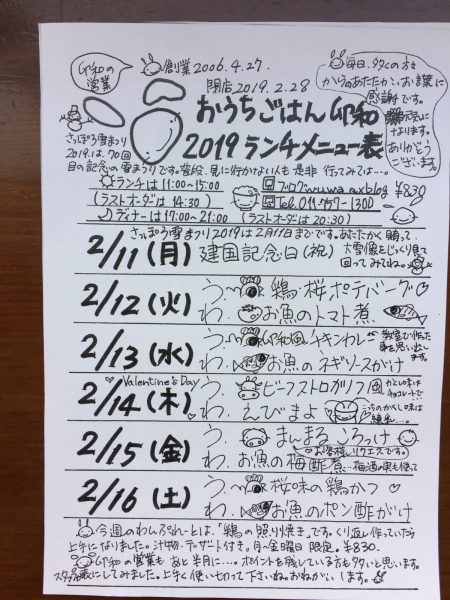 卯和の
営業
創業2006.4.27.
閉店2019.2.28
おうちごはん 卯和
2019ランチメニュー表
毎日、多くの方々
からのあたたかいお言葉に
感謝です。
元気に
なります。
ありがとう
ございます。
さっぽろ雪まつり
2019は、70回
目の記念の雪まつりです。普段、見に行かない人も是非行ってみては…。
ランチは11:00~15:00
(ラストオーダーは14:30)
ディナーは17:00~21:00 (ラストオーダーは20:30)
ブログ:wuwa.exblog
¥830
さっぽろ雪まつり2019は2月11日までです。あたたかく願って:
2/11(月) 建国記念日(祝) 大雪像をじっくり見て
回ってみてね。
2/12(火) う.〜 鶏・桜ポテバーグ
わ. お魚のトマト煮
2/13(水) う.〜 卯和風チキンカレー 教室で作った
事を思い出し
ます。
わ. お魚のネギソースがけ
Valentine's Day
2/14(木) う. ビーフストロガノフ風 かくし味は
チョコレートで…
わ. えびまよ こっちのかくし味は
練乳…。
2/15(金) う. まんまるころっけ
お客様リクエスです。
わ. お魚の梅酢煮 …梅酒の実も使って
2/16(土) う.〜 桜味の鶏かつ
わ. お魚のポン酢がけ
今週のわんぷれーとは、「鶏の照り焼き」です。くり返し作っていたら
上手になりました。汁物・デザート付き。月〜金曜日限定。¥830.
卯和の営業もあと半月に…。ポイントを残している方も多いと思います。
表にしてみました。上手く使い切って下さいね。おねがいします。
スタッフが